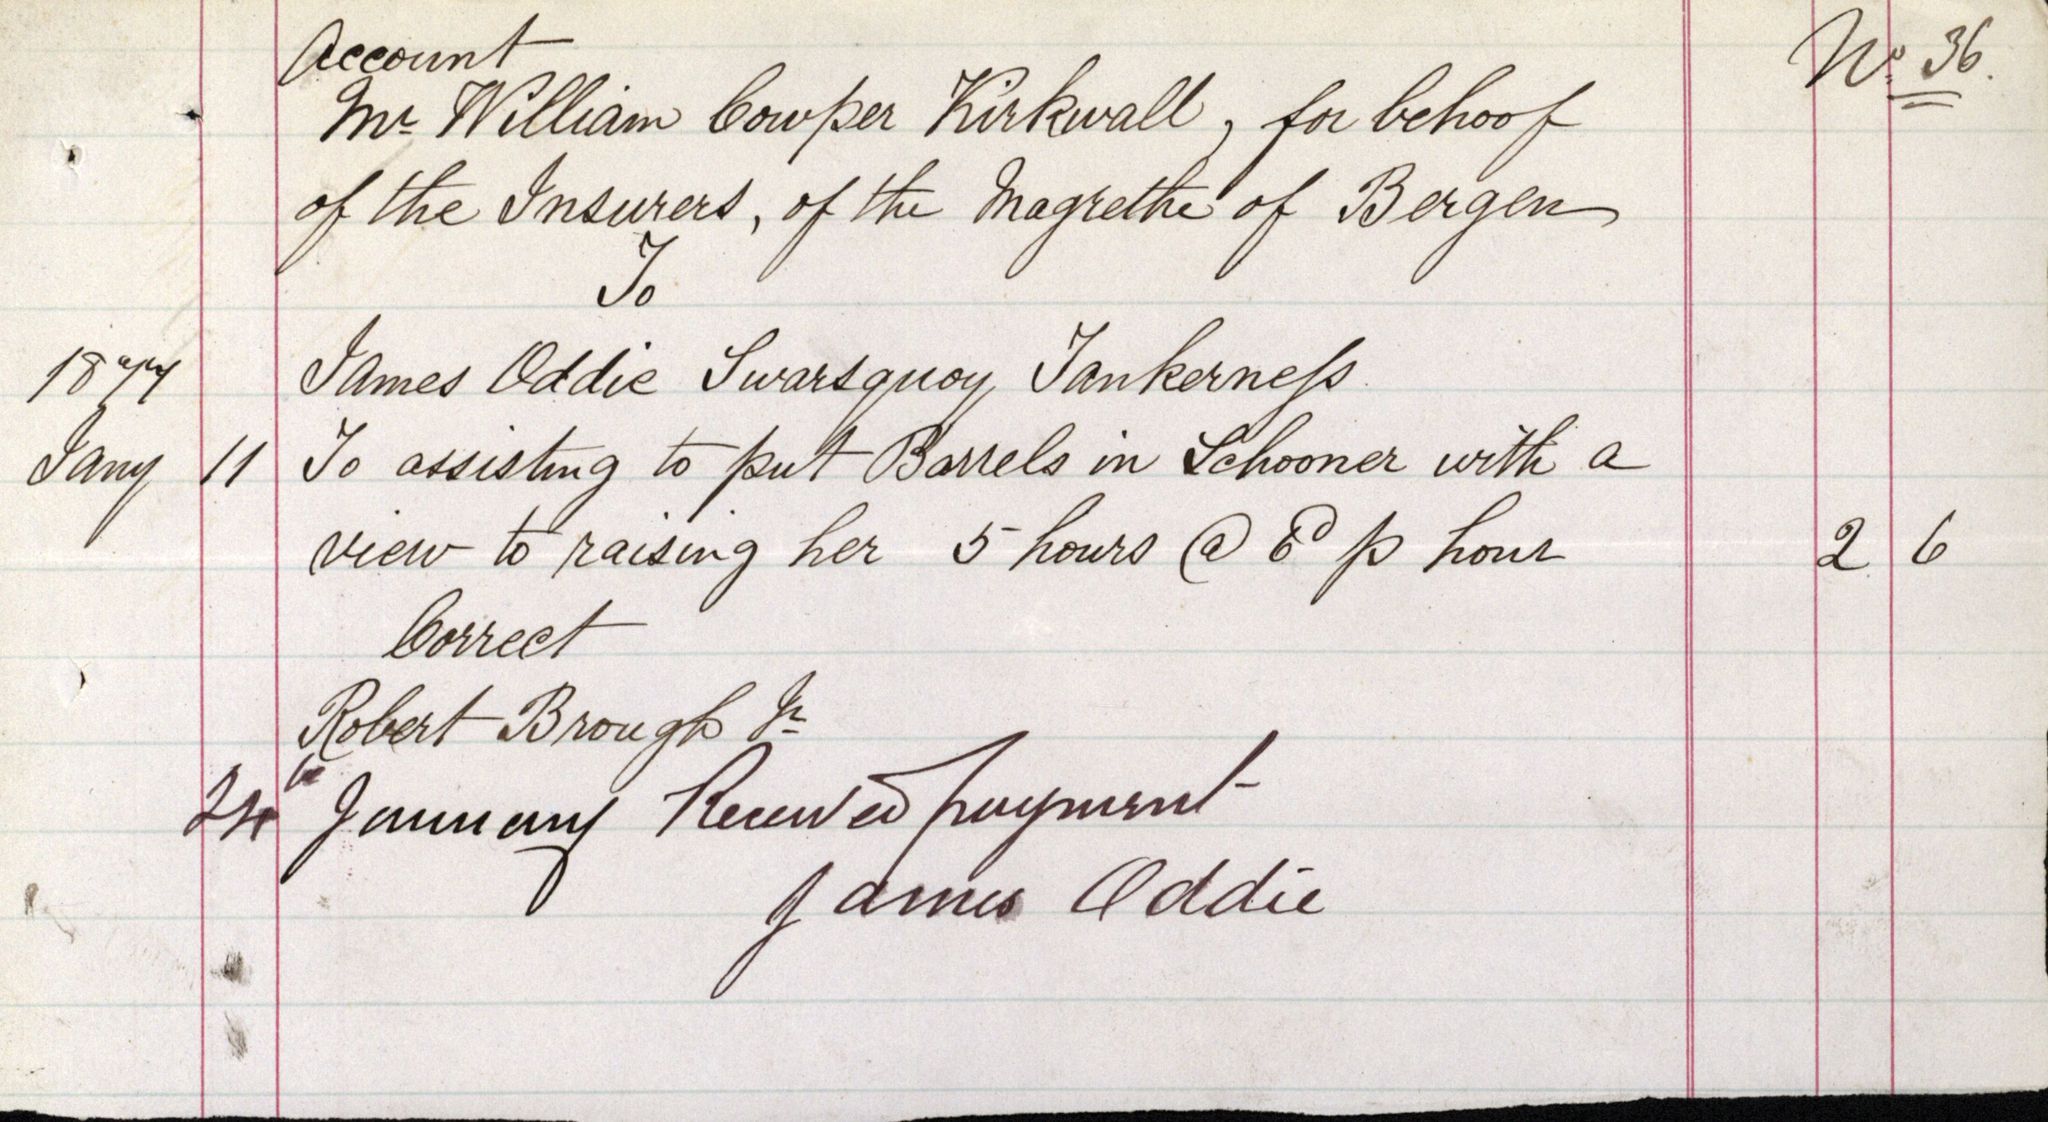 Account
No. 36.
Mr William Cowper Kirkwall, for behoof
of the Insurers, of the Magrethe of Bergen
To
1877 James Oddie Swarsquoy Tankerneſs
Jany 11 To assisting to put Barrels in Schooner with a
view to raising her 5 hours @ 6d p hour 2 6
Correct
Robert Brough Jr
24th January Received payment
James Oddie